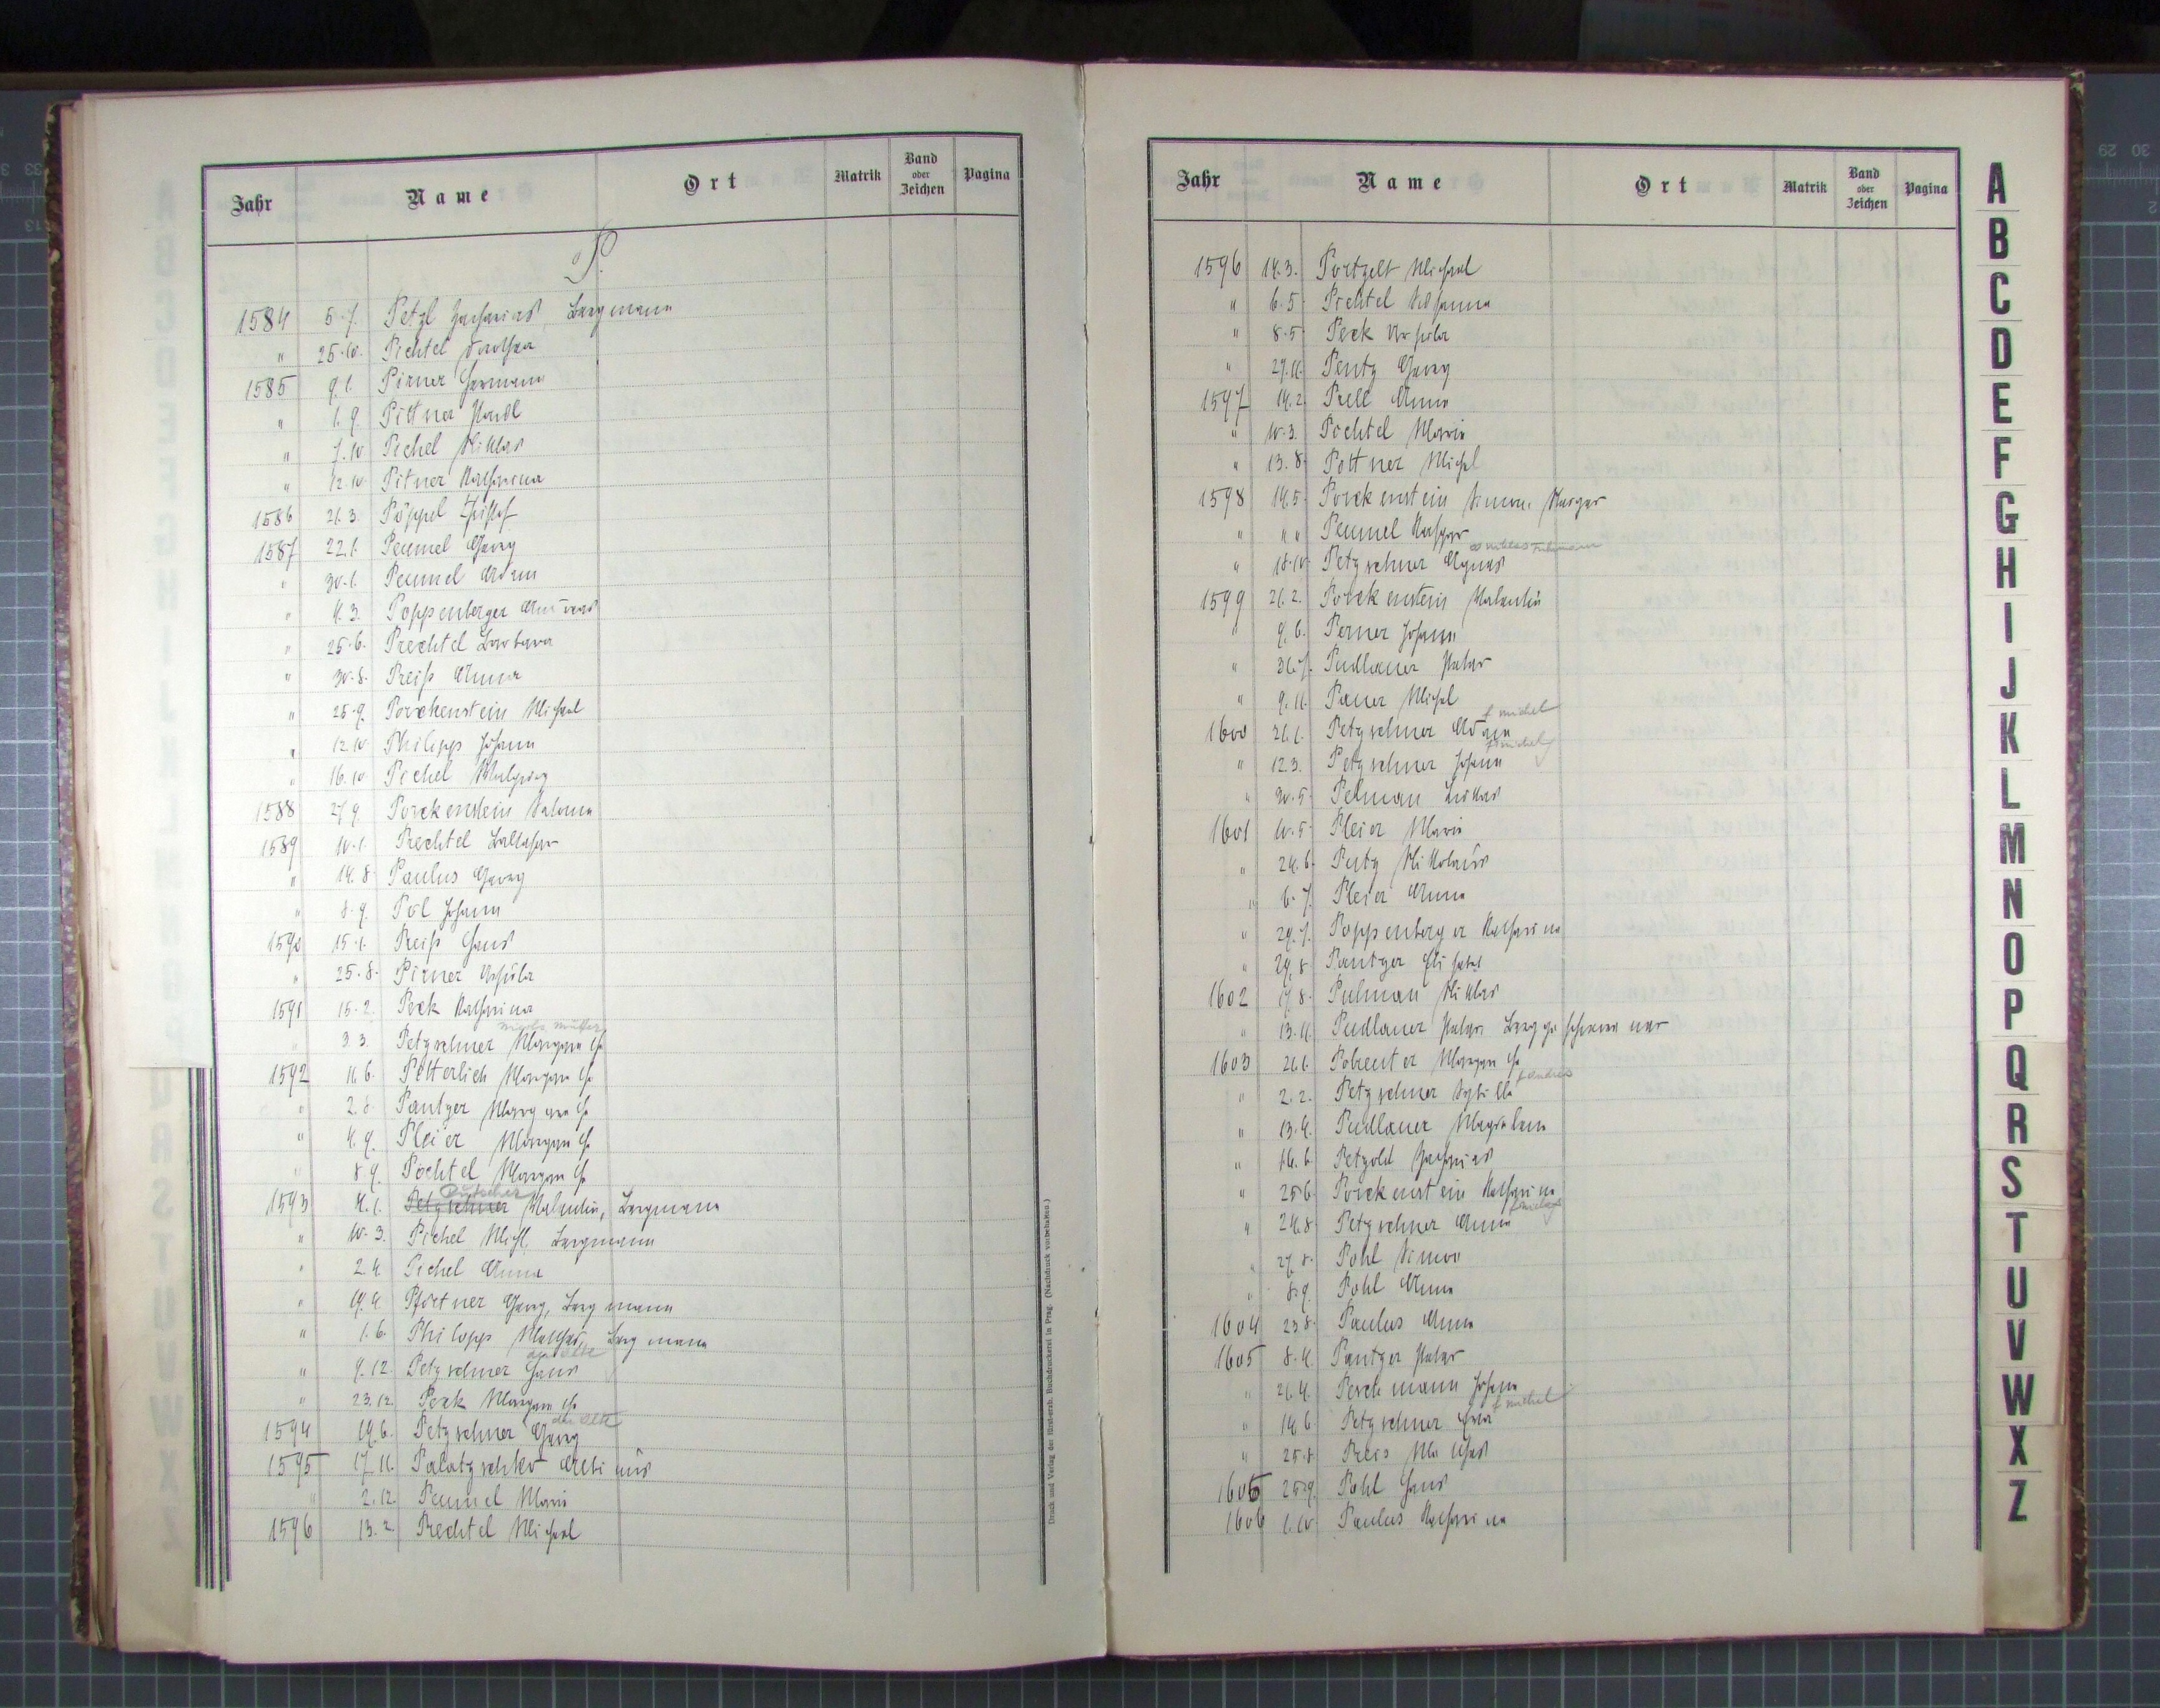 Jahr Name Ort Matrik Band oder Zeichen Pagina
P.
1584 5.7. Petzl Zacharias, Bergmann
" 25.10. Pichtel Dorothea
1585 9.1. Pirner Hermann
" 1.9. Pittner Paul
" 7.10 Pichel Niklas
" 12.10 Pitner Katharina
1586 21.3. Pöppel Christof
1587 22.1. Peumel Georg
" 30.1. Peumel Adam
" 4.3. Poppenberger Andreas
" 25.6. Prechtel Barbara
" 30.8. Preiß Anna
" 25.9. Porckenstein Michael
" 12.10 Philipp Johann
" 16.10 Pichel Wolfgang
1588 27.9. Porckenstein Salome
1589 10.1. Prechtel Balthasar
" 14.8. Paulus Georg
" 8.9. Pöl Johann
1590 15.1. Preiß Hans
" 25.8. Pirner Ursula
1591 15.2. Peck Katharina
" 3.3. Petzschner Margareth
1592 11.6. Petterlich Margareth
" 2.8. Pantzer Margareth
" 4.9. Pleier Margareth
" 8.9. Pöchtel Margareth
Putscher
1593 4.1. Petzschner Valentin, Bergmann
" 10.3. Pichel Michl, Bergmann
" 2.4. Pichel Anna
" 19.4. Pfortner Georg, Bergmann
" 1.6. Philipp Matthes, Bergmann
der alte
" 9.12. Petzschner Hans
" 23.12. Peck Margareth
der alte
1594 19.6. Petzschner Georg
1595 17.11. Palatzschko
" 2.12. Peumel Maria
1596 13.2. Prechtel Michael
Druck und Verlag der fürst-erzb. Buchdruckerei in Prag. (Nachdruck vorbehalten.)
Jahr Name Ort Matrik Band oder Zeichen Pagina
1596 14.3. Portzelt Michael
" 6.5. Pichtel Susanna
" 8.5. Peck Ursula
" 27.11. Pentz Georg
1597 14.2. Prell Anna
" 10.3. Pochtel Maria
" 13.8. Pottner Michel
1598 14.5. Porckenstein Simon,
" " " Peumel Kaspar
∞ niklas Fuhrmann
" 18.10. Petzschner Agnes
1599 21.2. Porckenstein Valentin
" 9.6. Perner Johann
" 31.7. Pudlauer Peter
" 9.11. Pauer Michel
f michel
1600 21.1. Petzschner Adam
f michel
" 12.3. Petzschner Johann
" 30.5. Pelman Lukas
1601 10.5. Pleier Maria
" 24.6. Putz Nikolaus
" 6.7. Pleier Anna
" 29.7. Poppenberger Katharina
" 29.8. Pantzer Elisabet
1602 17.8. Pulman Niklas
" 13.11. Pudlauer Peter, Berggeschworener
1603 21.1. Pobreuter Margareth
f Andreas
" 2.2. Petzschner Sybilla
" 13.4. Pudlauer Magdalena
" 16.6. Petzold Zacharias
" 25.6. Porckenstein Katharina
f michel
" 24.8. Petzschner Anna
" 27.8. Pohl Simon
" 8.9. Pohl Anna
1604 23.8. Paulus Anna
1605 8.4. Pantzer Peter
" 21.4. Perchmann Johann
f michel
" 14.6. Petzschner Eva
" 25.8. Preis Mathes
1605 25.9. Pohl Hans
1606 1.10. Paulus Katharina
A
B
C
D
E
F
G
H
I
J
K
L
M
N
O
P
Q
R
S
T
U
V
W
X
Z